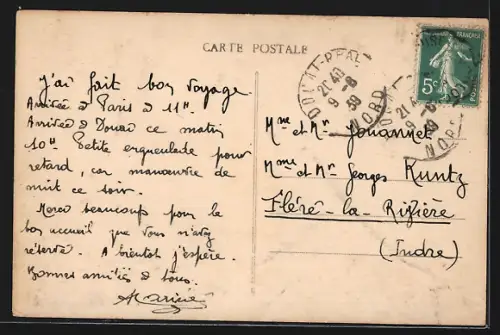 CARTE POSTALE
J'ai fait bon voyage
Arrivée à Paris à 11H.
Arrivée à Douai ce matin
10H. Petite engueulade pour
retard, car manœuvre de
nuit ce soir.
Merci beaucoup pour le
bon accueil que vous m'avez
réservé. A bientôt j'espère.
Bonnes amitiés à tous.
DOUAI-
21 40
9 -6
39
NORD
5c
Mme et Mr Jouannet
Mme et Mr Georges Kuntz
Fléré-la-Rivière
(Indre)